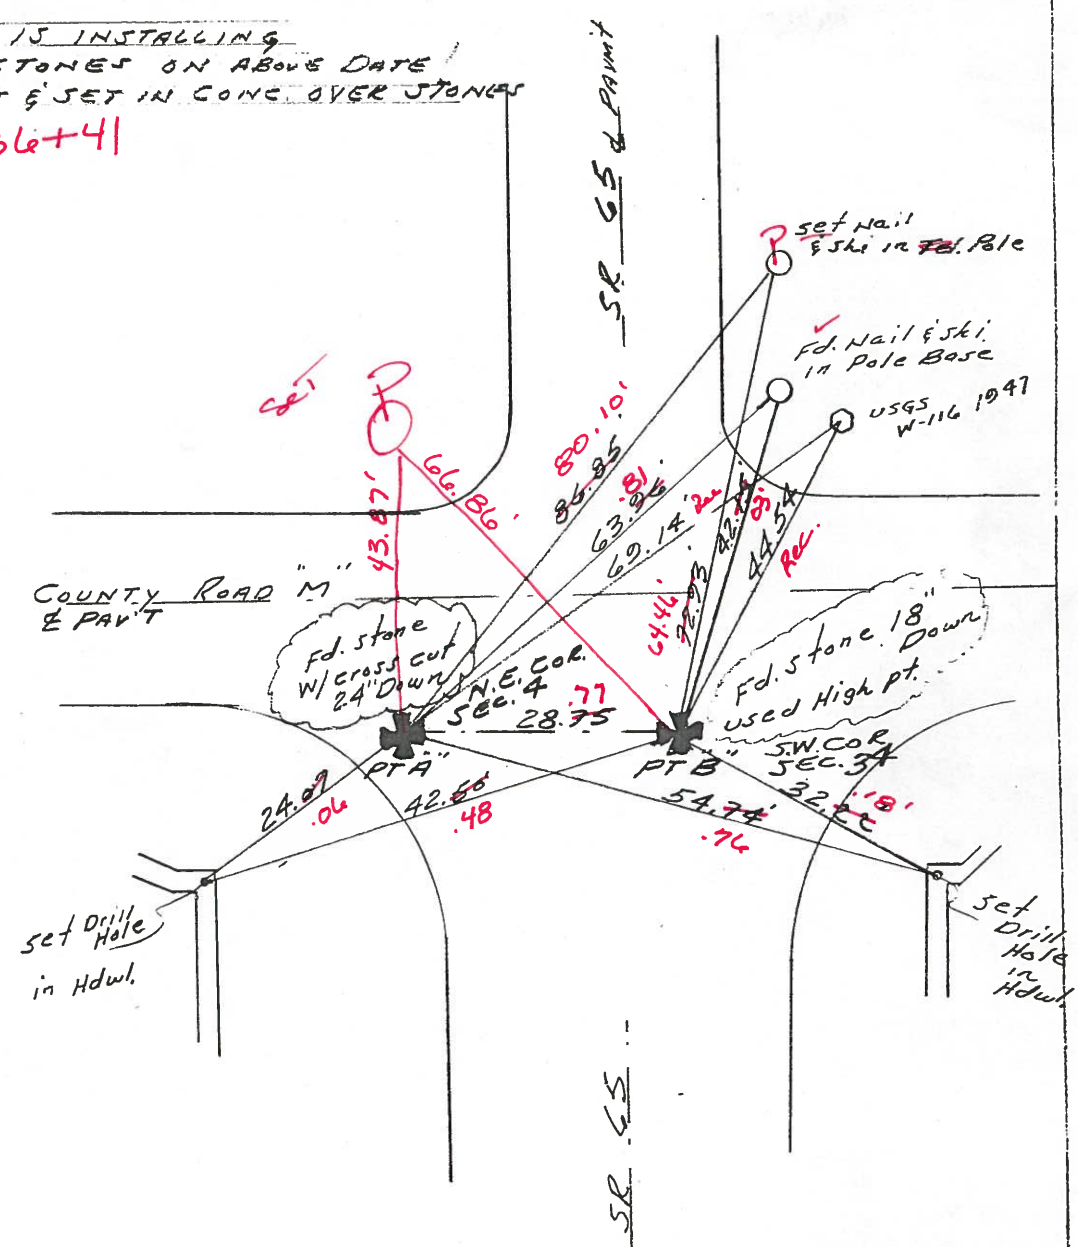 IS INSTALLING
STONES ON ABOVE DATE
& SET IN CONC. OVER STONES
66+41
SR 65 ℄ PAVMT
P
set Nail
& Shi in Fd. Pole
Fd. Nail & Shi.
in Pole Base
USGS
W-116 1947
set
P
43.87'
66.86'
80.10'
86.85
.81
63.96
69.14' Rec
42.
.83'
44.54
Rec.
64.46'
72.93
COUNTY ROAD "M"
℄ PAV'T
Fd. Stone
w/cross cut
24" Down
N.E. COR.
SEC. 4
.77
28.75
Fd. Stone 18"
Down
used High pt.
S.W. COR
SEC. 34
PT "A"
PT "B"
24.07
.06
42.50
.48
54.74'
.76
32.22
.18'
Set Drill
Hole
in Hdwl.
Set
Drill
Hole
in
Hdwl.
SR 65